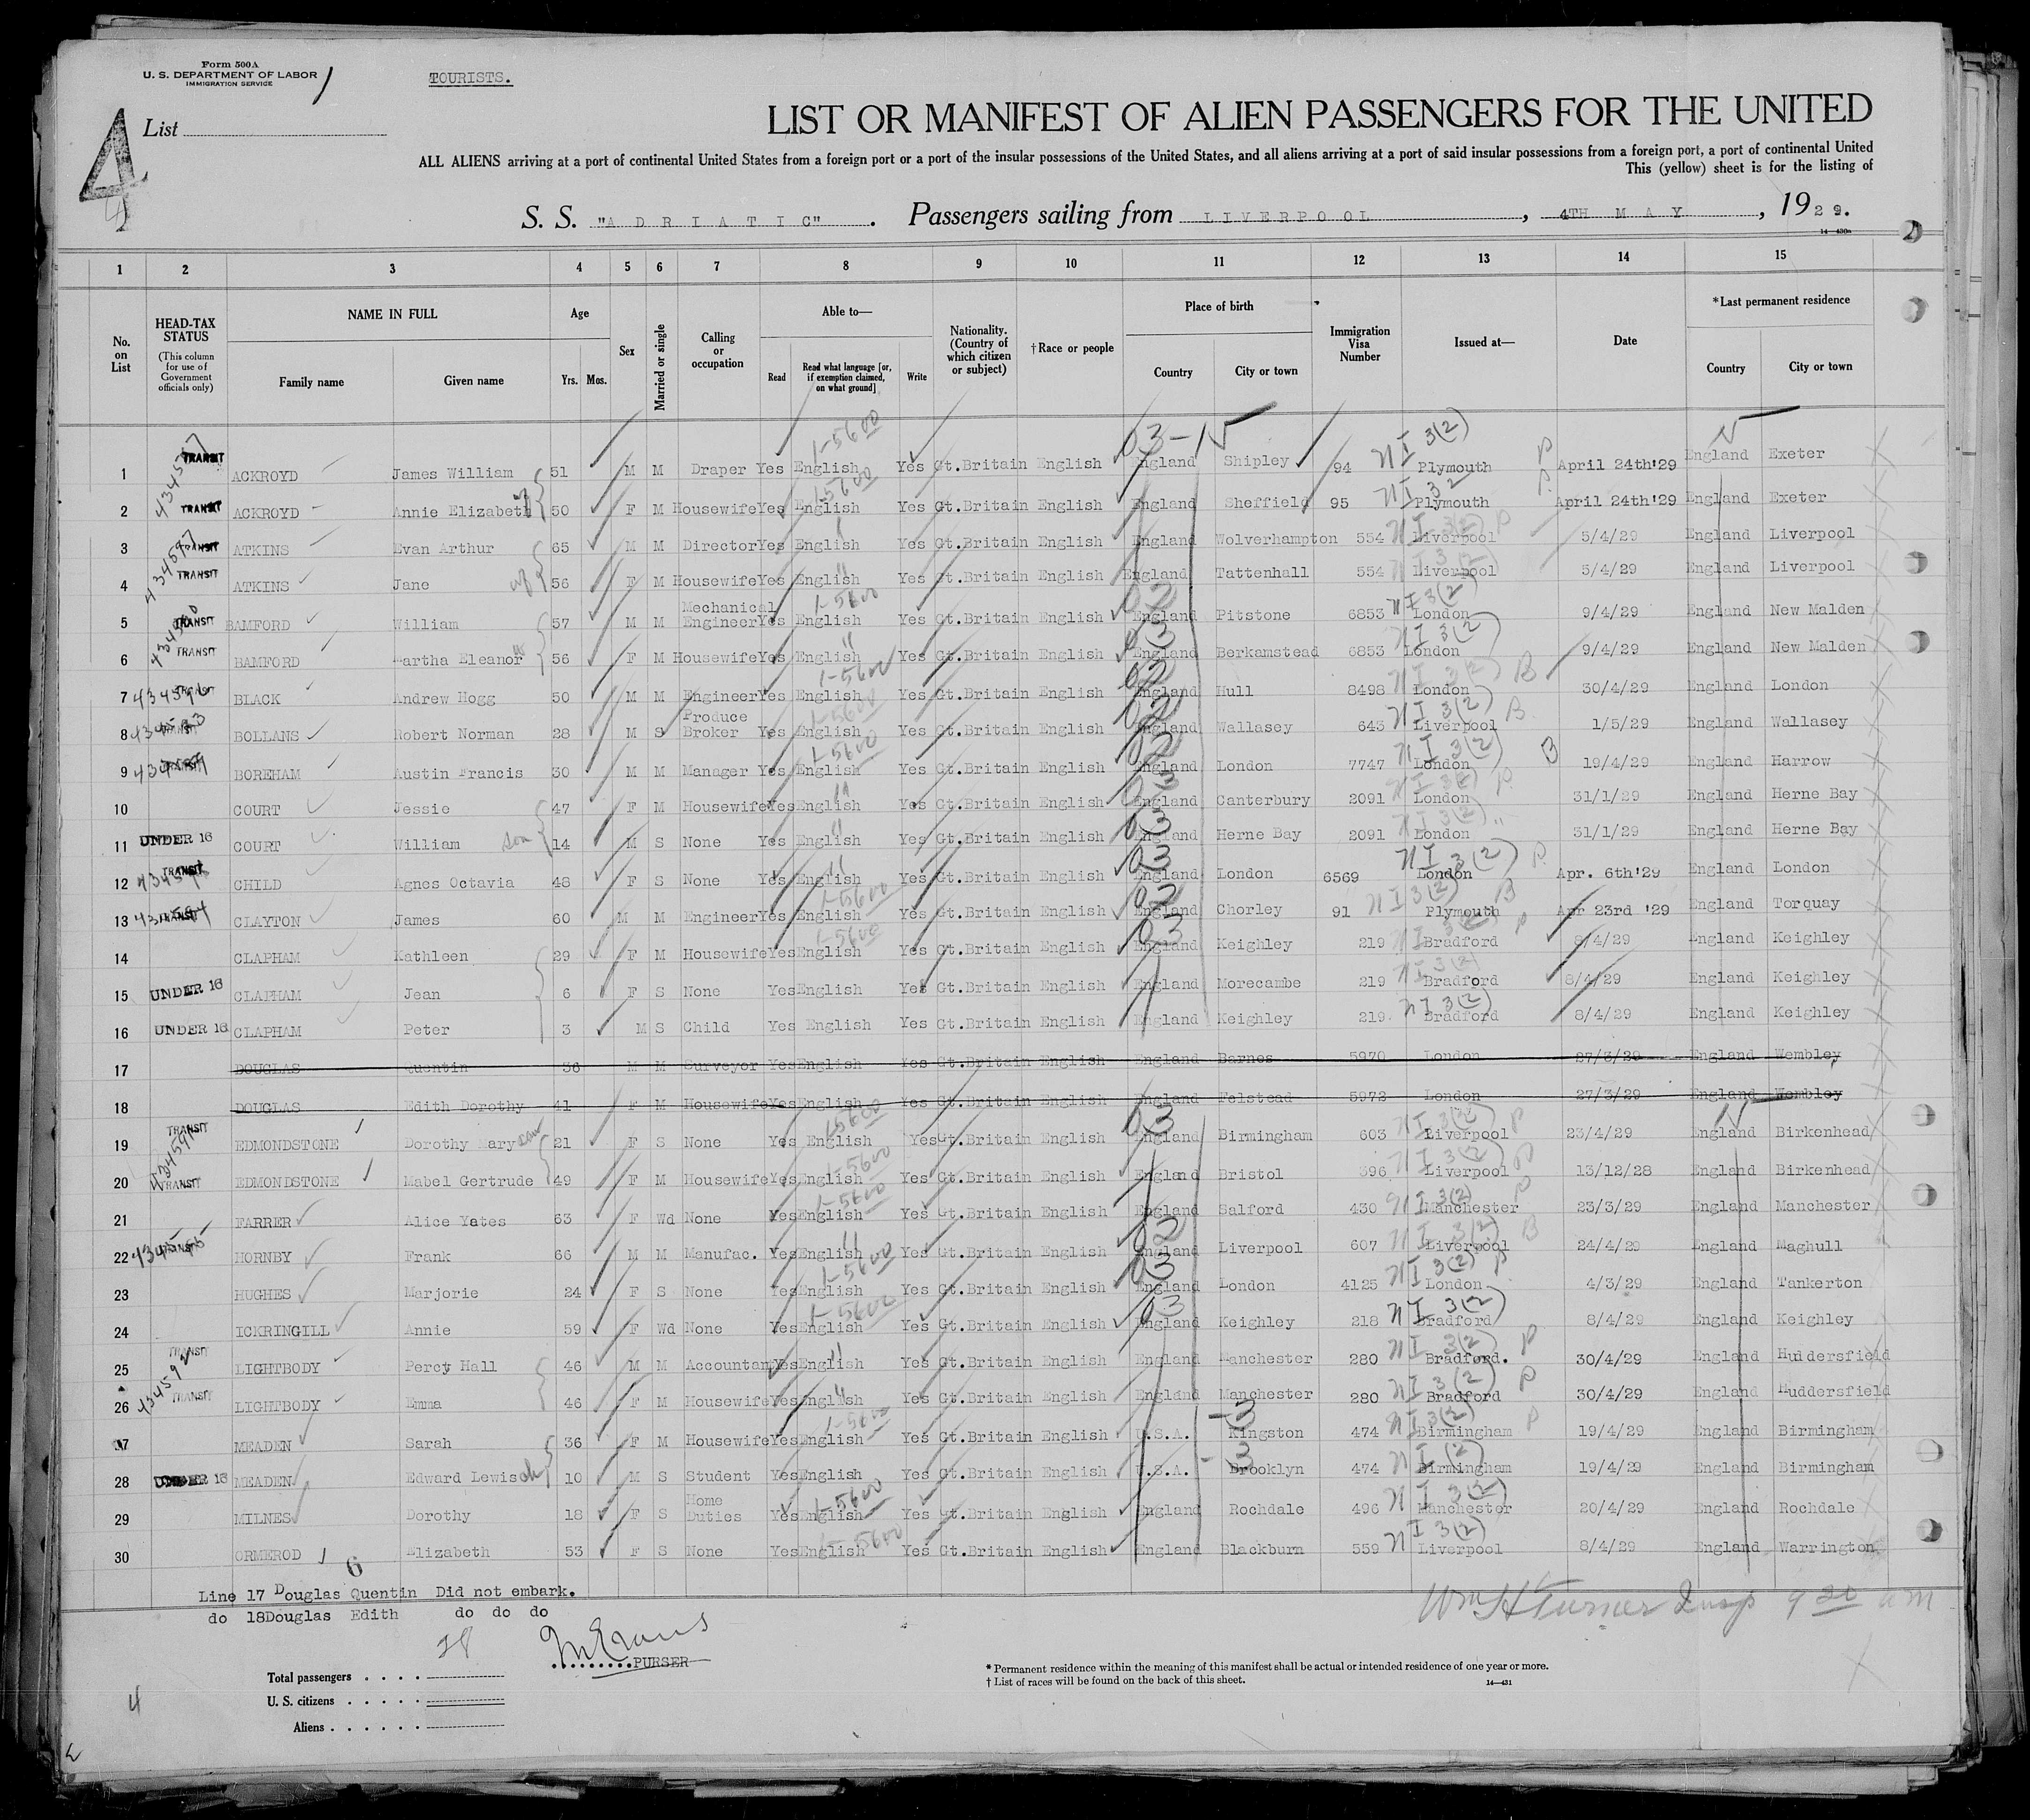 Form 500A
U. S. DEPARTMENT OF LABOR
IMMIGRATION SERVICE
TOURISTS.
4
List
LIST OR MANIFEST OF ALIEN PASSENGERS FOR THE UNITED
ALL ALIENS arriving at a port of continental United States from a foreign port or a port of the insular possessions of the United States, and all aliens arriving at a port of said insular possessions from a foreign port, a port of continental United
This (yellow) sheet is for the listing of
S. S. "ADRIATIC". Passengers sailing from LIVERPOOL, 4TH MAY, 1929.
14—430a
1 2 3 4 5 6 7 8 9 10 11 12 13 14 15
No. on List
HEAD-TAX STATUS (This column for use of Government officials only)
NAME IN FULL
Family name Given name
Age
Yrs. Mos.
Sex
Married or single
Calling or occupation
Able to—
Read Read what language [or, if exemption claimed, on what ground] Write
Nationality. (Country of which citizen or subject)
†Race or people
Place of birth
Country City or town
Immigration Visa Number
Issued at—
Date
*Last permanent residence
Country City or town
1 TRANSIT ACKROYD James William 51 M M Draper Yes English Yes Gt.Britain English England Shipley 94 NI 3(2) Plymouth April 24th'29 England Exeter
2 TRANSIT ACKROYD Annie Elizabeth wf 50 F M Housewife Yes English Yes Gt.Britain English England Sheffield 95 NI 32 Plymouth April 24th'29 England Exeter
3 TRANSIT ATKINS Evan Arthur 65 M M Director Yes English Yes Gt.Britain English England Wolverhampton 554 NI 3(2) Liverpool 5/4/29 England Liverpool
4 TRANSIT ATKINS Jane wf 56 F M Housewife Yes English Yes Gt.Britain English England Tattenhall 554 NI 3(2) Liverpool 5/4/29 England Liverpool
5 TRANSIT BAMFORD William 57 M M Mechanical Engineer Yes English Yes Gt.Britain English England Pitstone 6853 NI 3(2) London 9/4/29 England New Malden
6 TRANSIT BAMFORD Martha Eleanor 56 F M Housewife Yes English Yes Gt.Britain English England Berkamstead 6853 NI 3(2) London 9/4/29 England New Malden
7 TRANSIT BLACK Andrew Hogg 50 M M Engineer Yes English Yes Gt.Britain English England Hull 8498 NI 3(2) London 30/4/29 England London
8 BOLLANS Robert Norman 28 M S Produce Broker Yes English Yes Gt.Britain English England Wallasey 643 NI 3(2) Liverpool 1/5/29 England Wallasey
9 BOREHAM Austin Francis 30 M M Manager Yes English Yes Gt.Britain English England London 7747 NI 3(2) London 19/4/29 England Harrow
10 COURT Jessie 47 F M Housewife Yes English Yes Gt.Britain English England Canterbury 2091 NI 3(2) London 31/1/29 England Herne Bay
11 UNDER 16 COURT William son 14 M S None Yes English Yes Gt.Britain English England Herne Bay 2091 NI 3(2) London 31/1/29 England Herne Bay
12 TRANSIT CHILD Agnes Octavia 48 F S None Yes English Yes Gt.Britain English England London 6569 NI 3(2) London Apr. 6th'29 England London
13 TRANSIT CLAYTON James 60 M M Engineer Yes English Yes Gt.Britain English England Chorley 91 NI 3(2) Plymouth Apr 23rd '29 England Torquay
14 CLAPHAM Kathleen 29 F M Housewife Yes English Yes Gt.Britain English England Keighley 219 NI 3(2) Bradford 8/4/29 England Keighley
15 UNDER 16 CLAPHAM Jean 6 F S None Yes English Yes Gt.Britain English England Morecambe 219 NI 3(2) Bradford 8/4/29 England Keighley
16 UNDER 16 CLAPHAM Peter 3 M S Child Yes English Yes Gt.Britain English England Keighley 219 NI 3(2) Bradford 8/4/29 England Keighley
17 DOUGLAS Quentin 36 M M Surveyor Yes English Yes Gt.Britain English England Barnes 5970 London 27/3/29 England Wembley
18 DOUGLAS Edith Dorothy 41 F M Housewife Yes English Yes Gt.Britain English England Felstead 5972 London 27/3/29 England Wembley
19 TRANSIT EDMONDSTONE Dorothy Mary 21 F S None Yes English Yes Gt.Britain English England Birmingham 603 NI 3(2) Liverpool 23/4/29 England Birkenhead
20 TRANSIT EDMONDSTONE Mabel Gertrude 49 F M Housewife Yes English Yes Gt.Britain English England Bristol 396 NI 3(2) Liverpool 13/12/28 England Birkenhead
21 FARRER Alice Yates 63 F Wd None Yes English Yes Gt.Britain English England Salford 430 NI 3(2) Manchester 23/3/29 England Manchester
22 TRANSIT HORNBY Frank 66 M M Manufac. Yes English Yes Gt.Britain English England Liverpool 607 NI 3(2) Liverpool 24/4/29 England Maghull
23 HUGHES Marjorie 24 F S None Yes English Yes Gt.Britain English England London 4125 NI 3(2) London 4/3/29 England Tankerton
24 ICKRINGILL Annie 59 F Wd None Yes English Yes Gt.Britain English England Keighley 218 NI 3(2) Bradford 8/4/29 England Keighley
25 TRANSIT LIGHTBODY Percy Hall 46 M M Accountant Yes English Yes Gt.Britain English England Manchester 280 NI 3(2) Bradford. 30/4/29 England Huddersfield
26 TRANSIT LIGHTBODY Emma 46 F M Housewife Yes English Yes Gt.Britain English England Manchester 280 NI 3(2) Bradford 30/4/29 England Huddersfield
27 MEADEN Sarah 36 F M Housewife Yes English Yes Gt.Britain English U.S.A. Kingston 474 NI 3(2) Birmingham 19/4/29 England Birmingham
28 UNDER 16 MEADEN Edward Lewis ch 10 M S Student Yes English Yes Gt.Britain English U.S.A. Brooklyn 474 NI (2) Birmingham 19/4/29 England Birmingham
29 MILNES Dorothy 18 F S Home Duties Yes English Yes Gt.Britain English England Rochdale 496 NI 3(2) Manchester 20/4/29 England Rochdale
30 ORMEROD Elizabeth 53 F S None Yes English Yes Gt.Britain English England Blackburn 559 NI 3(2) Liverpool 8/4/29 England Warrington
6
Line 17 Douglas Quentin Did not embark.
do 18Douglas Edith do do do
Wm H Turner Insp 9 20 am
28
PURSER
Total passengers
U. S. citizens
Aliens
4
* Permanent residence within the meaning of this manifest shall be actual or intended residence of one year or more.
† List of races will be found on the back of this sheet.
14—431